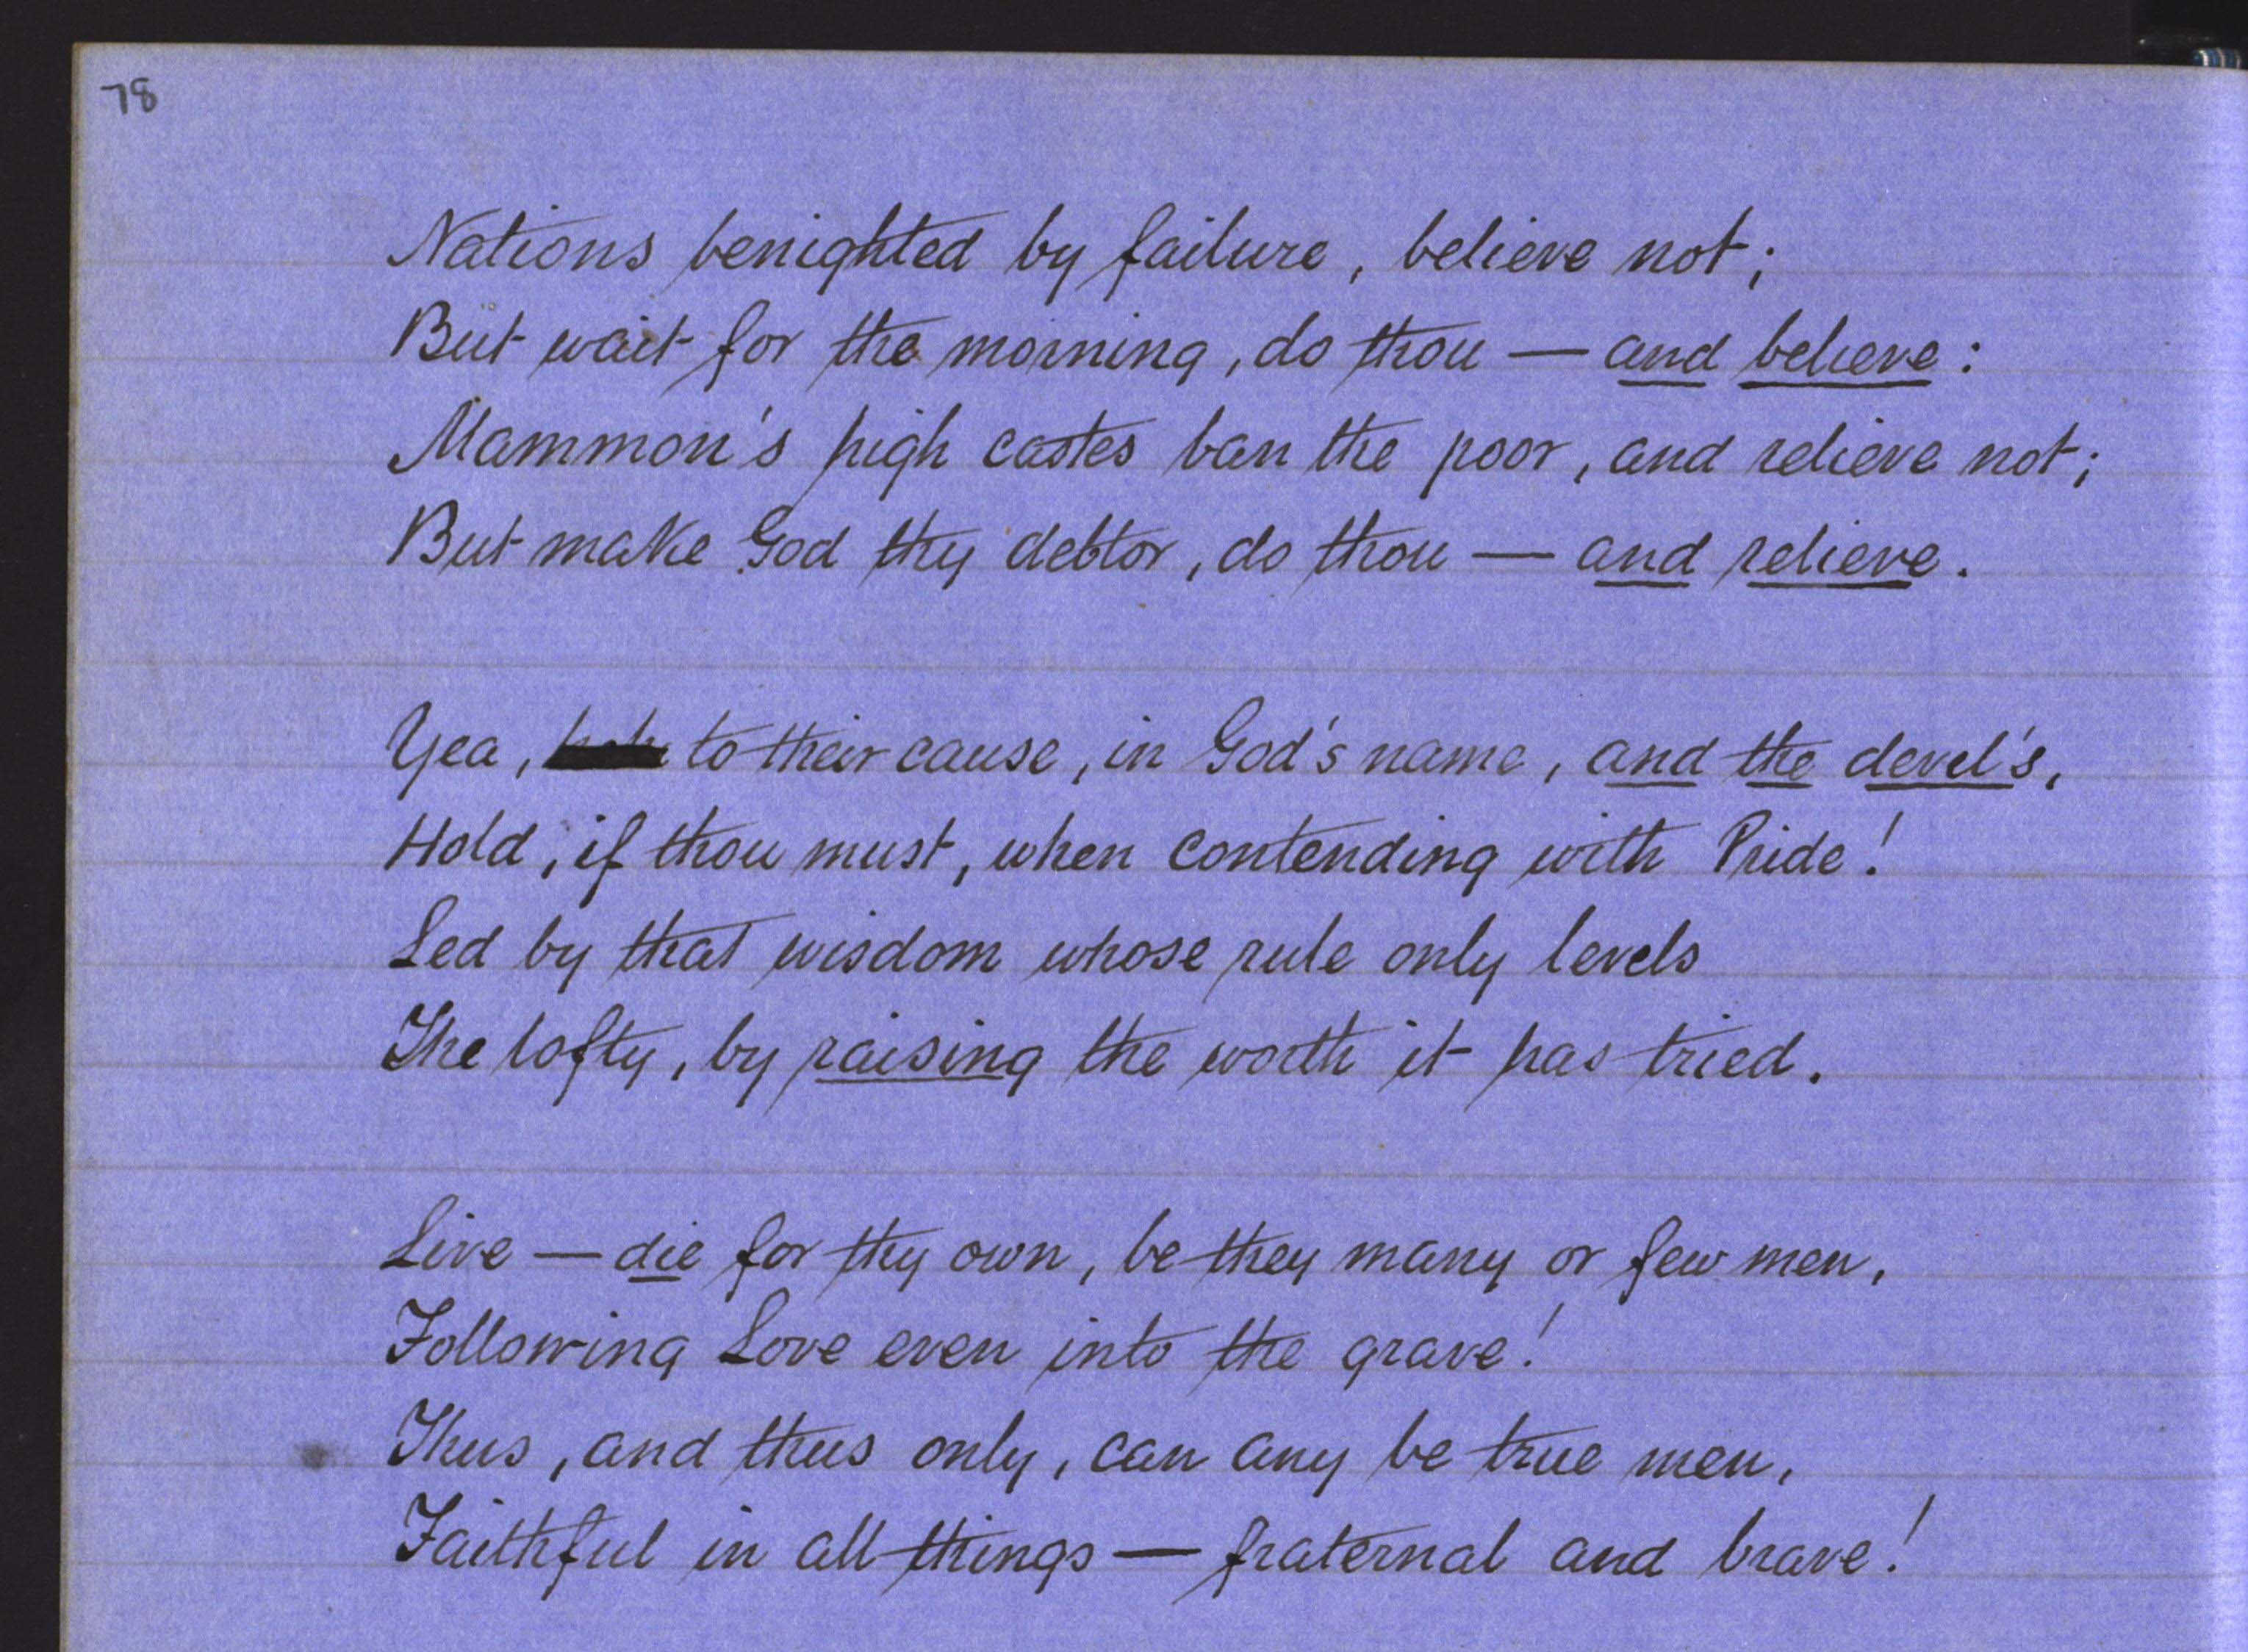 78
Nations benighted by failure, believe not;
But wait for the morning, do thou — and believe:
Mammon's high castes ban the poor, and relieve not;
But make God thy debtor, do thou — and relieve.
Yea, to their cause, in God's name, and the devil's,
Hold, if thou must, when contending with Pride!
Led by that wisdom whose rule only levels
The lofty, by raising the worth it has tried.
Live — die for thy own, be they many or few men,
Following Love even into the grave!
Thus, and thus only, can any be true men,
Faithful in all things — fraternal and brave!